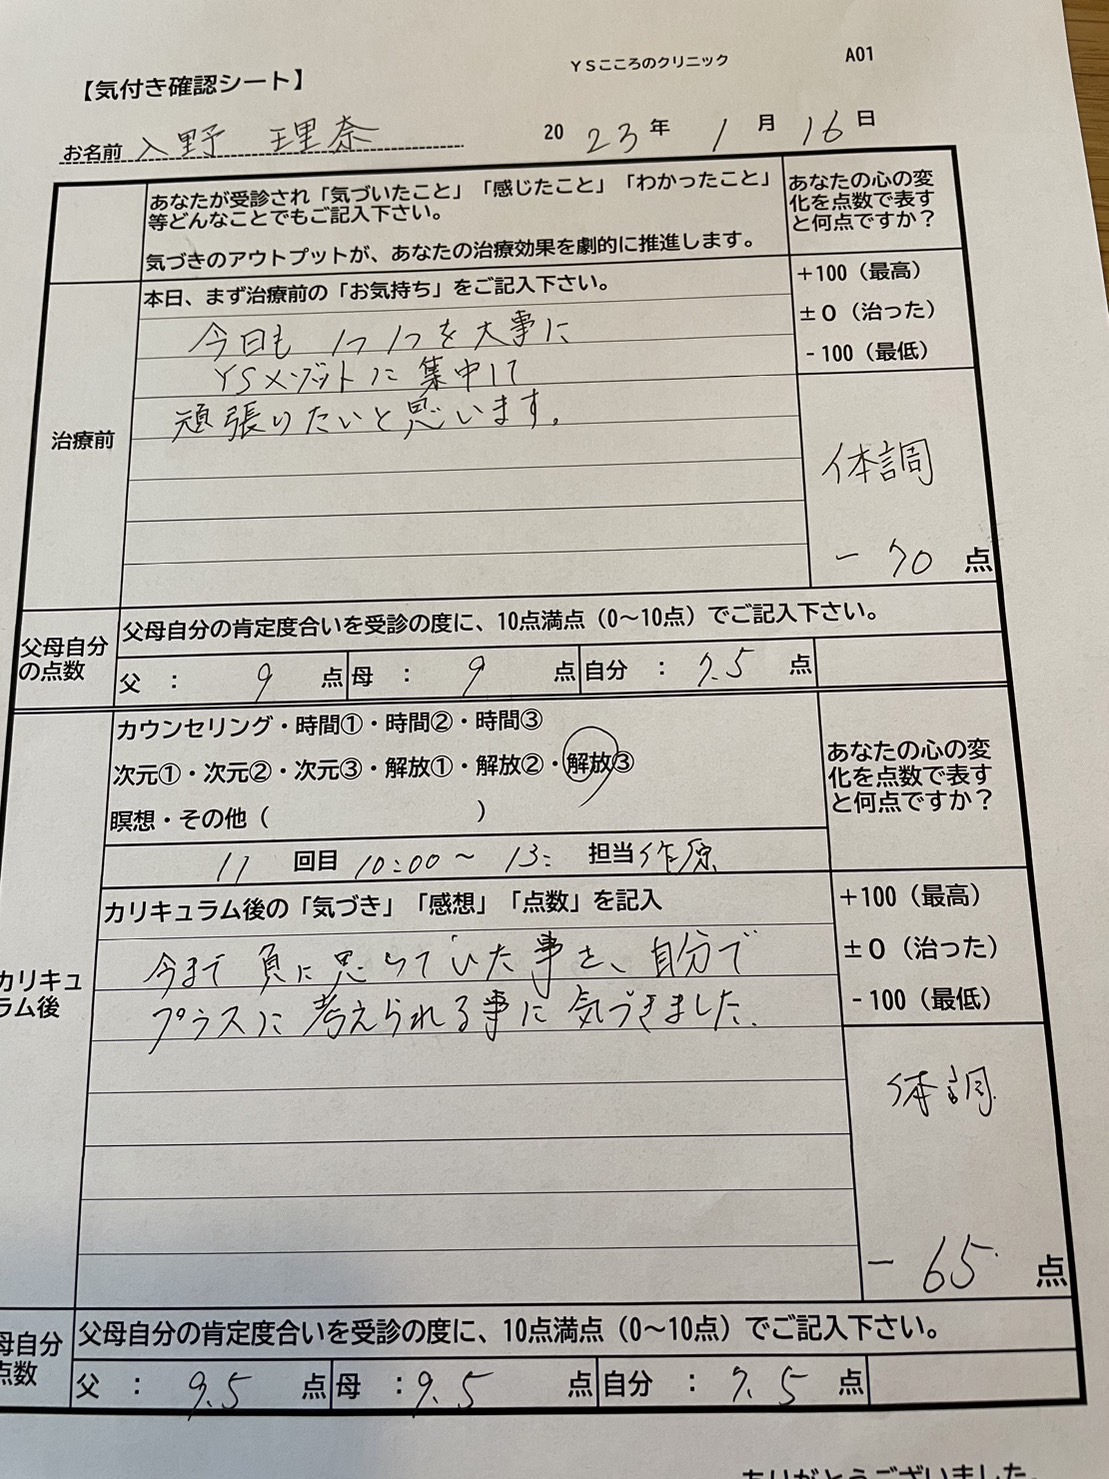 【気付き確認シート】
YSこころのクリニック
A01
お名前 入野 理奈
20 23 年 1 月 16 日
あなたが受診され「気づいたこと」「感じたこと」「わかったこと」
等どんなことでもご記入下さい。
気づきのアウトプットが、あなたの治療効果を劇的に推進します。
あなたの心の変
化を点数で表す
と何点ですか？
治療前
本日、まず治療前の「お気持ち」をご記入下さい。
今日も 1つ1つを大事に
YSメソッドに集中して
頑張りたいと思います。
+100（最高）
±0（治った）
-100（最低）
体調
- 70 点
父母自分
の点数
父母自分の肯定度合いを受診の度に、10点満点（0～10点）でご記入下さい。
父 ： 9 点 母 ： 9 点 自分 ： 7.5 点
カリキュ
ラム後
カウンセリング・時間①・時間②・時間③
次元①・次元②・次元③・解放①・解放②・解放③
瞑想・その他（ ）
11 回目 10:00 ～ 13: 担当 作原
あなたの心の変
化を点数で表す
と何点ですか？
カリキュラム後の「気づき」「感想」「点数」を記入
今まで負に思っていた事を、自分で
プラスに考えられる事に気づきました.
+100（最高）
±0（治った）
-100（最低）
体調
- 65 点
母自分
点数
父母自分の肯定度合いを受診の度に、10点満点（0～10点）でご記入下さい。
父 ： 9.5 点 母 ： 9.5 点 自分 ： 7.5 点
ありがとうございました。